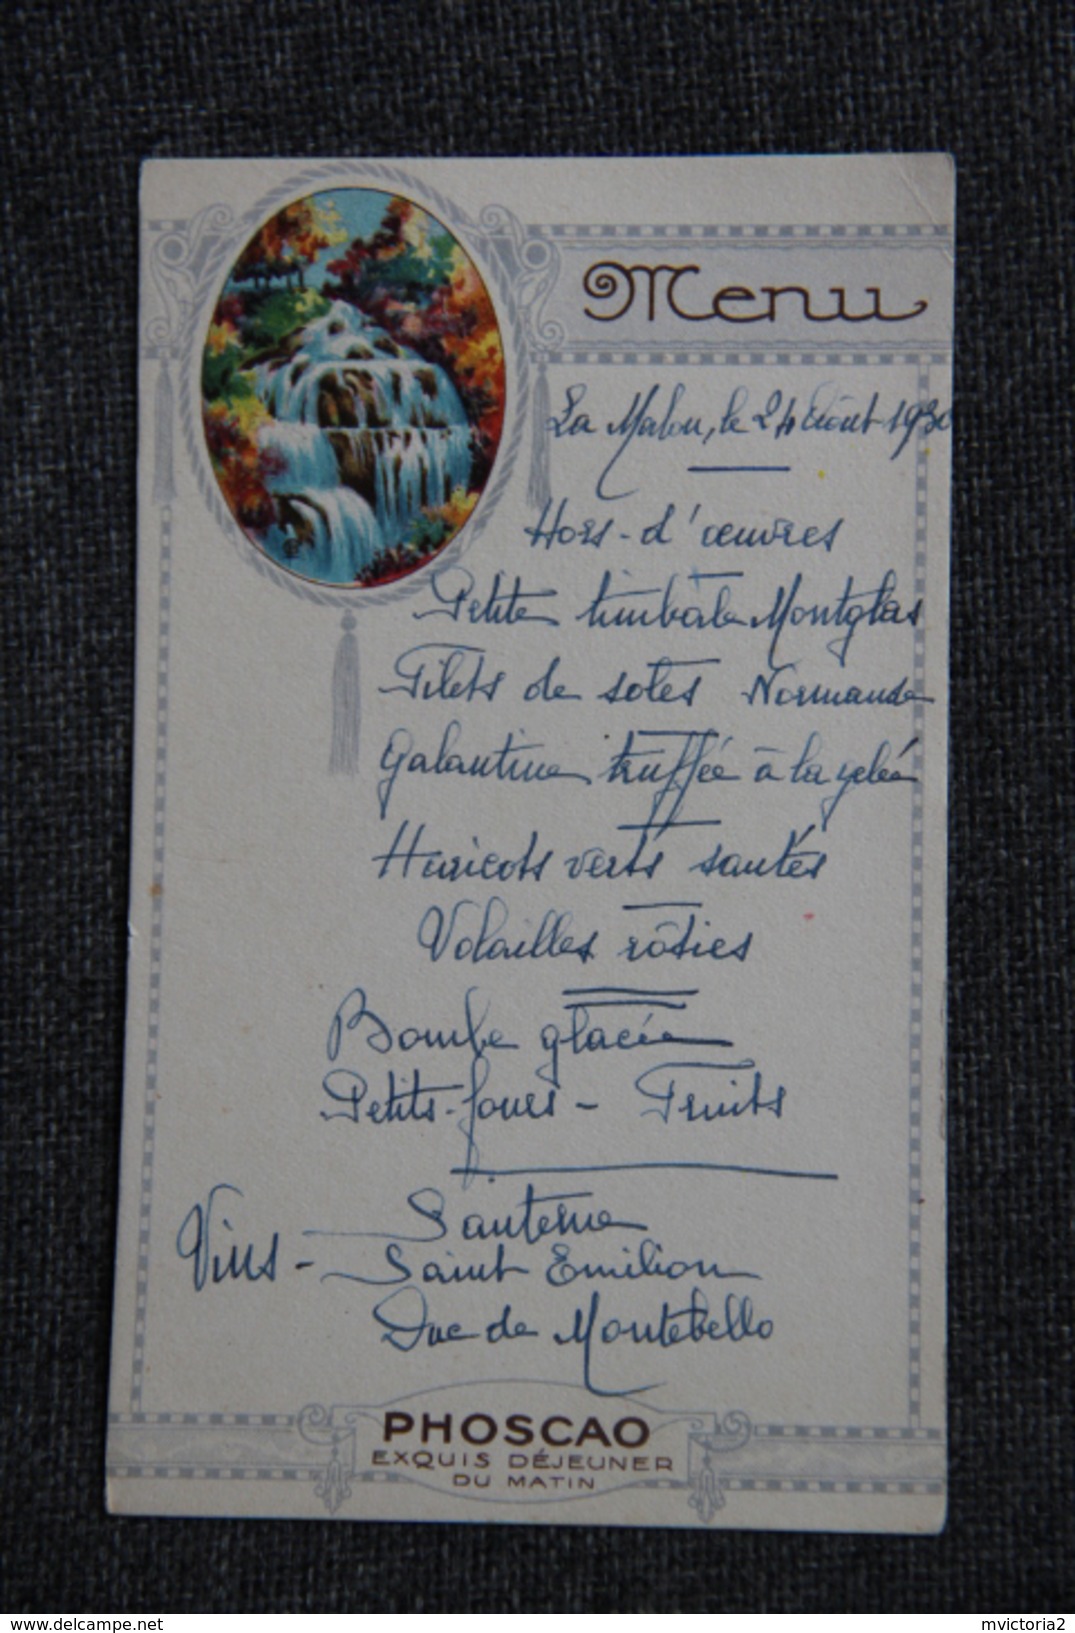 Menu
La Malou, le 24 Août 1930
Hors-d'œuvres
Petite timbale Montglas
Filets de soles Normande
Galantine truffée à la gelée
Haricots verts sautés
Volailles rôties
Bombe glacée
Petits-fours - Fruits
Vins - Sauterne
Saint Emilion
Duc de Montebello
PHOSCAO
EXQUIS DÉJEUNER
DU MATIN
delcampe.net
mvictoria2